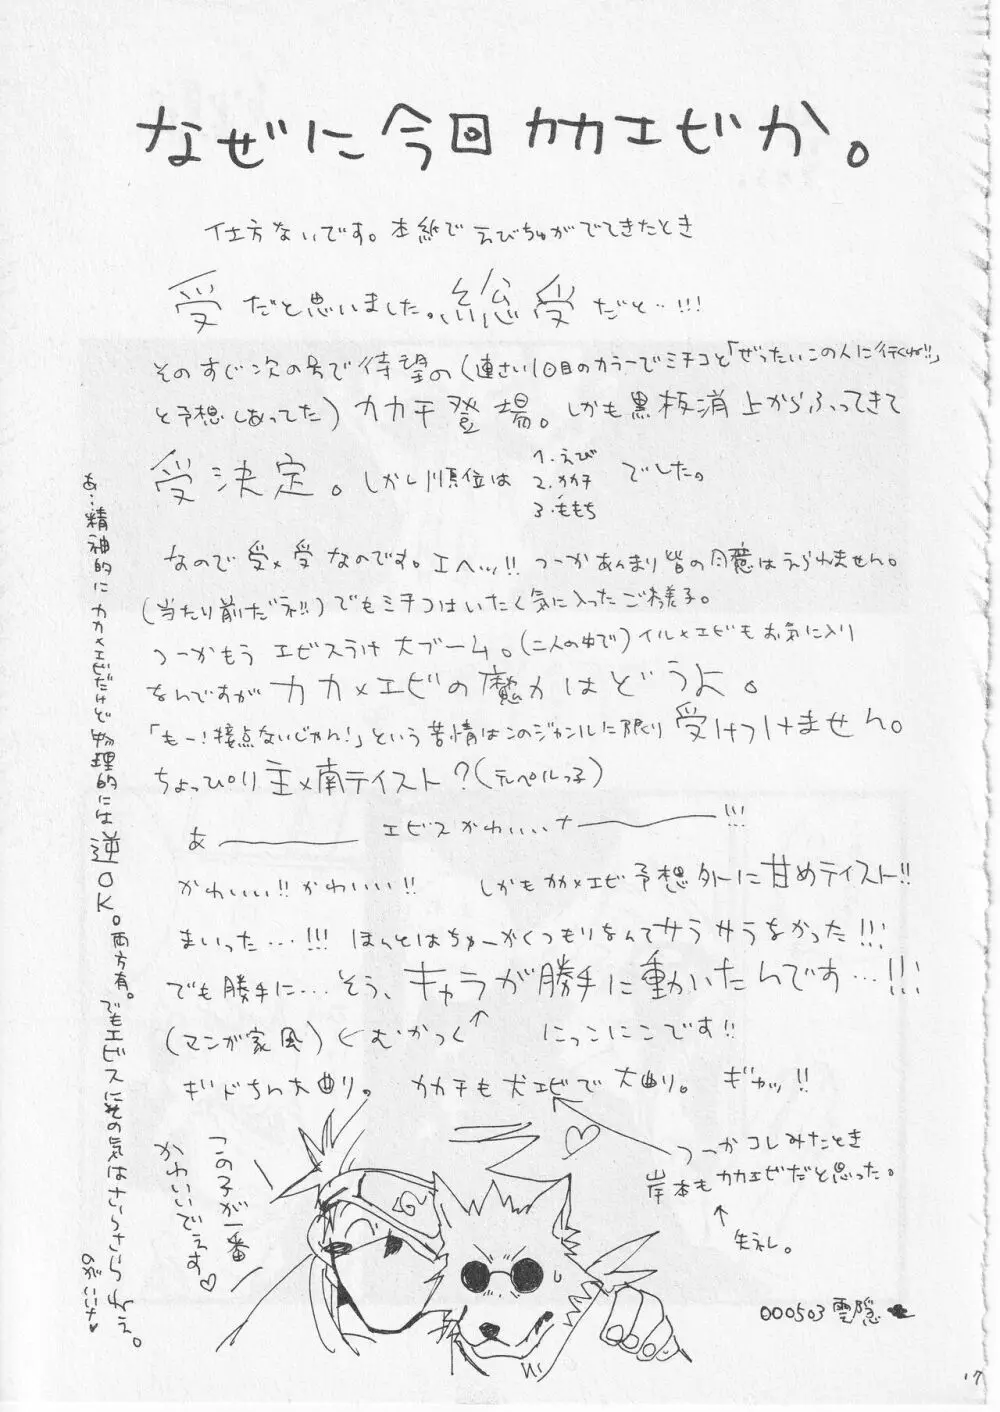 なぜに今回カカエビか。
仕方ないです。本紙でえびちゅがでてきたとき
受だと思いました。総受だと…!!!
そのすぐ次の号で待望の(連さい10回目のカラーでミチコと「ぜったいこの人に行くね!!」
と予想しあってた)カカチ登場。しかも黒板消上からふってきて
受決定。しかし順位は
1.えび
2.カカチ
3.ももち
でした。
なので受×受なのです。エヘッ!!つーかあんまり皆の同意はえられません。
(当たり前だネ!!)でもミチコはいたく気に入ったご様子。
つーかもうエビスうけ大ブーム。(二人の中で)イル×エビもお気に入り
なんですがカカ×エビの魔力はどうよ。
「もー!接点ないじゃん!」という苦情はこのジャンルに限り受けつけません。
ちょっぴり主×南テイスト?(テルペルっ子)
あ――エビスかわいいナ――!!!
かわいい!!かわいい!! しかもカカ×エビ予想外に甘めテイスト!!
まいった…!!!ほんとはちゅーがくつもりなんてサラサラなかった!!!
でも勝手に…そう、キャラが勝手に動いたんです…!!!
(マンガ家風)←むかつく↑ にっこにこです!!
ギドちん大曲り。 カカチも犬エビで大曲り。 ギャッ!!
つーかコレみたとき
岸本もカカエビだと思った。
↑
失礼。
この子が一番
かわいいでえす♡
あ…精神的にカカ×エビだけど物理的には逆OK。両方有。でもエビスにその気はさらさらねえ。
のがいいナ♥
000503 雲隠
17